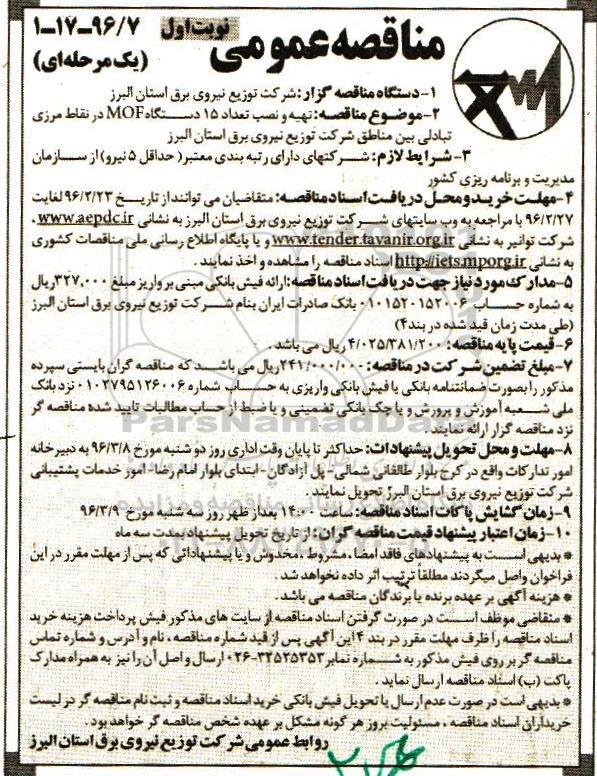 مناقصه عمومی
نوبت اول
۱-۱۷-۹۶/۷
(یک مرحله ای)
۱-دستگاه مناقصه گزار: شرکت توزیع نیروی برق استان البرز
۲-موضوع مناقصه: تهیه و نصب تعداد ۱۵ دستگاه MOF در نقاط مرزی
تبادلی بین مناطق شرکت توزیع نیروی برق استان البرز
۳-شرایط لازم: شرکتهای دارای رتبه بندی معتبر( حداقل ۵ نیرو) از سازمان
مدیریت و برنامه ریزی کشور
۴-مهلت خرید و محل دریافت اسناد مناقصه: متقاضیان می توانند از تاریخ ۹۶/۲/۲۳ لغایت
۹۶/۲/۲۷ با مراجعه به وب سایتهای شرکت توزیع نیروی برق استان البرز به نشانی www.aepdc.ir ،
شرکت توانیر به نشانی www.tender.tavanir.org.ir و یا پایگاه اطلاع رسانی ملی مناقصات کشوری
به نشانی http://iets.mporg.ir اسناد مناقصه را مشاهده و اخذ نمایند .
۵-مدارک مورد نیاز جهت دریافت اسناد مناقصه: ارائه فیش بانکی مبنی بر واریز مبلغ ۳۲۷,۰۰۰ ریال
به شماره حساب ۰۱۰۱۵۲۰۱۵۲۰۰۶ بانک صادرات ایران بنام شرکت توزیع نیروی برق استان البرز
(طی مدت زمان قید شده در بند۴)
۶-قیمت پایه مناقصه: ۴/۰۲۵/۳۸۱/۲۰۰ ریال می باشد .
۷-مبلغ تضمین شرکت در مناقصه: ۲۴۱/۰۰۰/۰۰۰ریال می باشد که مناقصه گران بایستی سپرده
مذکور را بصورت ضمانتنامه بانکی یا فیش بانکی واریزی به حساب شماره ۰۱۰۲۷۹۵۱۲۶۰۰۶ نزد بانک
ملی شعبه آموزش و پرورش و یا چک بانکی تضمینی و یا ضبط از حساب مطالبات تایید شده مناقصه گر
نزد مناقصه گزار ارائه نمایند.
۸-مهلت و محل تحویل پیشنهادات: حداکثر تا پایان وقت اداری روز دو شنبه مورخ ۹۶/۳/۸ به دبیرخانه
امور تدارکات واقع در کرج بلوار طالقانی شمالی- پل آزادگان- ابتدای بلوار امام رضا- امور خدمات پشتیبانی
شرکت توزیع نیروی برق استان البرز تحویل نمایند.
۹-زمان گشایش پاکات اسناد مناقصه: ساعت ۱۴:۰۰ بعداز ظهر روز سه شنبه مورخ ۹۶/۳/۹
۱۰-زمان اعتبار پیشنهاد قیمت مناقصه گران: از تاریخ تحویل پیشنهاد بمدت سه ماه
* بدیهی است به پیشنهادهای فاقد امضا، مشروط ،مخدوش و یا پیشنهاداتی که پس از مهلت مقرر در این
فراخوان واصل میگردند مطلقاً ترتیب اثر داده نخواهد شد .
* هزینه آگهی بر عهده برنده یا برندگان مناقصه می باشد .
* متقاضی موظف است در صورت گرفتن اسناد مناقصه از سایت های مذکور فیش پرداخت هزینه خرید
اسناد مناقصه را ظرف مهلت مقرر در بند ۴ این آگهی پس از قید شماره مناقصه ، نام و آدرس و شماره تماس
مناقصه گر بر روی فیش مذکور به شماره نمابر ۳۲۵۲۵۳۵۳-۰۲۶ ارسال و اصل آن را نیز به همراه مدارک
پاکت (ب) اسناد مناقصه ارسال نماید .
* بدیهی است در صورت عدم ارسال یا تحویل فیش بانکی خرید اسناد مناقصه و ثبت نام مناقصه گر در لیست
خریداران اسناد مناقصه ، مسئولیت بروز هر گونه مشکل بر عهده شخص مناقصه گر خواهد بود .
روابط عمومی شرکت توزیع نیروی برق استان البرز
ParsNamadData